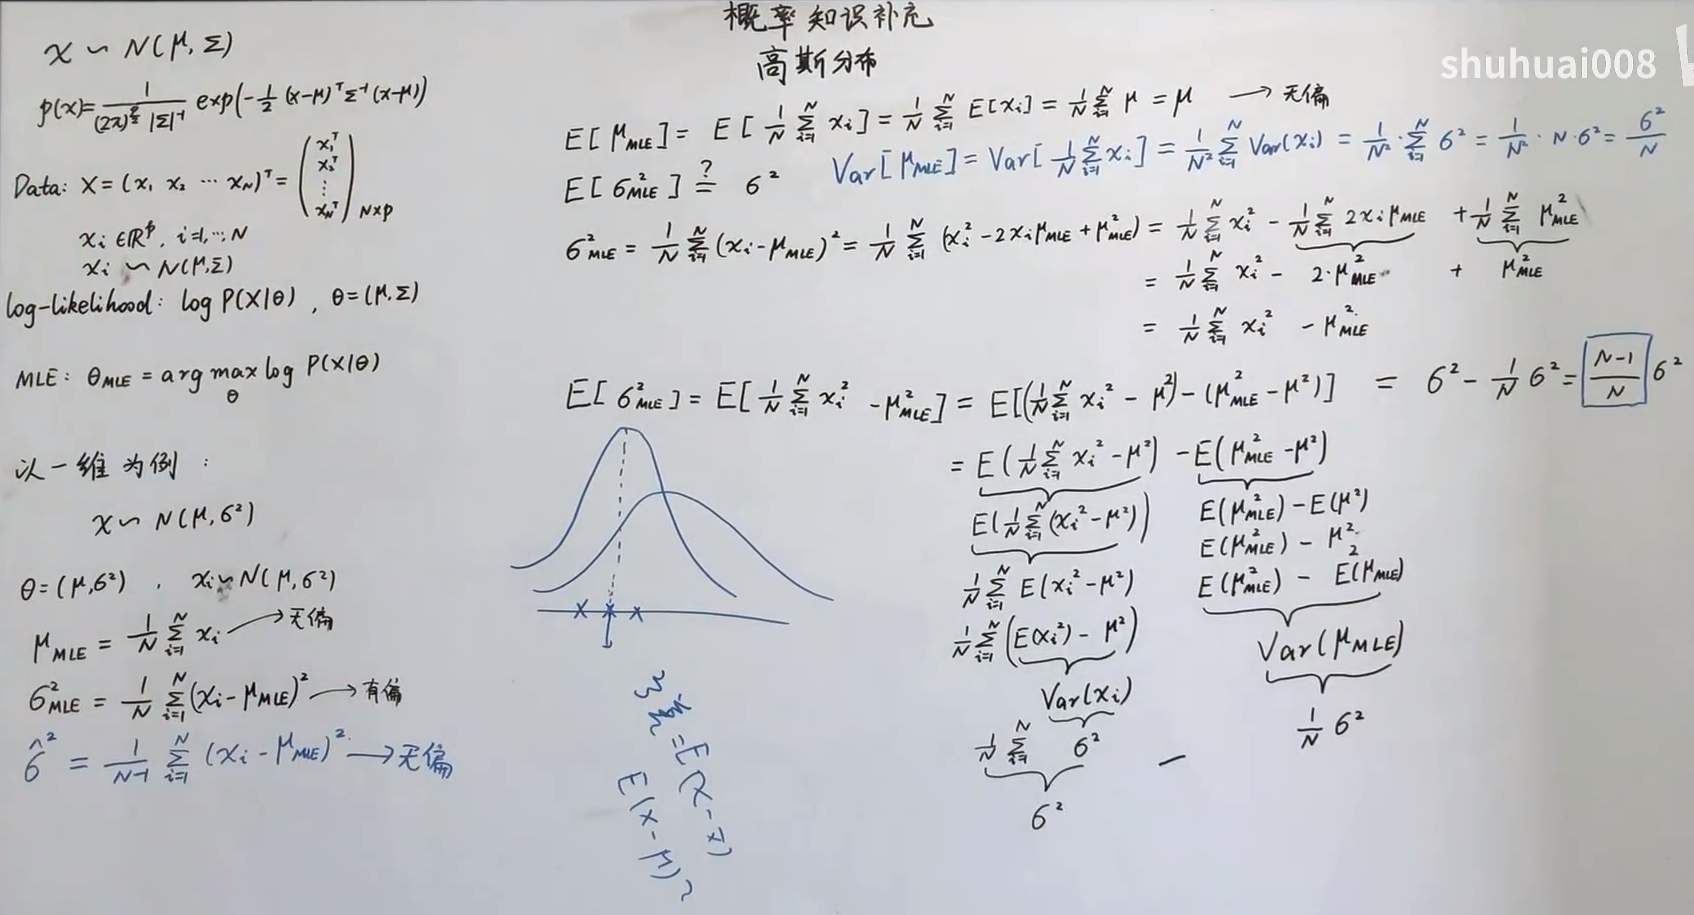 概率知识补充
高斯分布
shuhuai008
x ∽ N(μ, Σ)
p(x) = 1/((2π)^{p/2} |Σ|^{-1}) exp(-1/2 (x-μ)^T Σ^{-1} (x-μ))
Data: X = (x₁ x₂ ⋯ x_N)^T = (x₁^T x₂^T ⋮ x_N^T)_{N×p}
x_i ∈ ℝ^p, i=1,⋯,N
x_i ∽ N(μ,Σ)
log-likelihood: log P(X|θ) , θ=(μ,Σ)
MLE: θ_MLE = arg max_θ log P(X|θ)
以一维为例 :
x ∽ N(μ, σ²)
θ=(μ,σ²) , x_i ∽ N(μ,σ²)
μ_MLE = 1/N Σ_{i=1}^N x_i → 无偏
σ²_MLE = 1/N Σ_{i=1}^N (x_i - μ_MLE)² → 有偏
σ̂² = 1/(N-1) Σ_{i=1}^N (x_i - μ_MLE)² → 无偏
E[μ_MLE] = E[1/N Σ_{i=1}^N x_i] = 1/N Σ_{i=1}^N E[x_i] = 1/N Σ_{i=1}^N μ = μ → 无偏
Var[μ_MLE] = Var[1/N Σ_{i=1}^N x_i] = 1/N² Σ_{i=1}^N Var(x_i) = 1/N² · Σ_{i=1}^N σ² = 1/N² · N·σ² = σ²/N
E[σ²_MLE] ?= σ²
σ²_MLE = 1/N Σ_{i=1}^N (x_i - μ_MLE)² = 1/N Σ_{i=1}^N (x_i² - 2x_iμ_MLE + μ²_MLE) = 1/N Σ_{i=1}^N x_i² - 1/N Σ_{i=1}^N 2x_iμ_MLE + 1/N Σ_{i=1}^N μ²_MLE
= 1/N Σ_{i=1}^N x_i² - 2·μ²_MLE + μ²_MLE
= 1/N Σ_{i=1}^N x_i² - μ²_MLE
E[σ²_MLE] = E[1/N Σ_{i=1}^N x_i² - μ²_MLE] = E[(1/N Σ_{i=1}^N x_i² - μ²) - (μ²_MLE - μ²)] = σ² - 1/N σ² = (N-1)/N σ²
= E(1/N Σ_{i=1}^N x_i² - μ²) - E(μ²_MLE - μ²)
E(1/N Σ_{i=1}^N (x_i² - μ²))
1/N Σ_{i=1}^N E(x_i² - μ²)
1/N Σ_{i=1}^N (E(x_i²) - μ²)
Var(x_i)
1/N Σ_{i=1}^N σ² -
σ²
E(μ²_MLE) - E(μ²)
E(μ²_MLE) - μ²
E(μ²_MLE) - E²(μ_MLE)
Var(μ_MLE)
1/N σ²
× × ×
E(x-μ)²